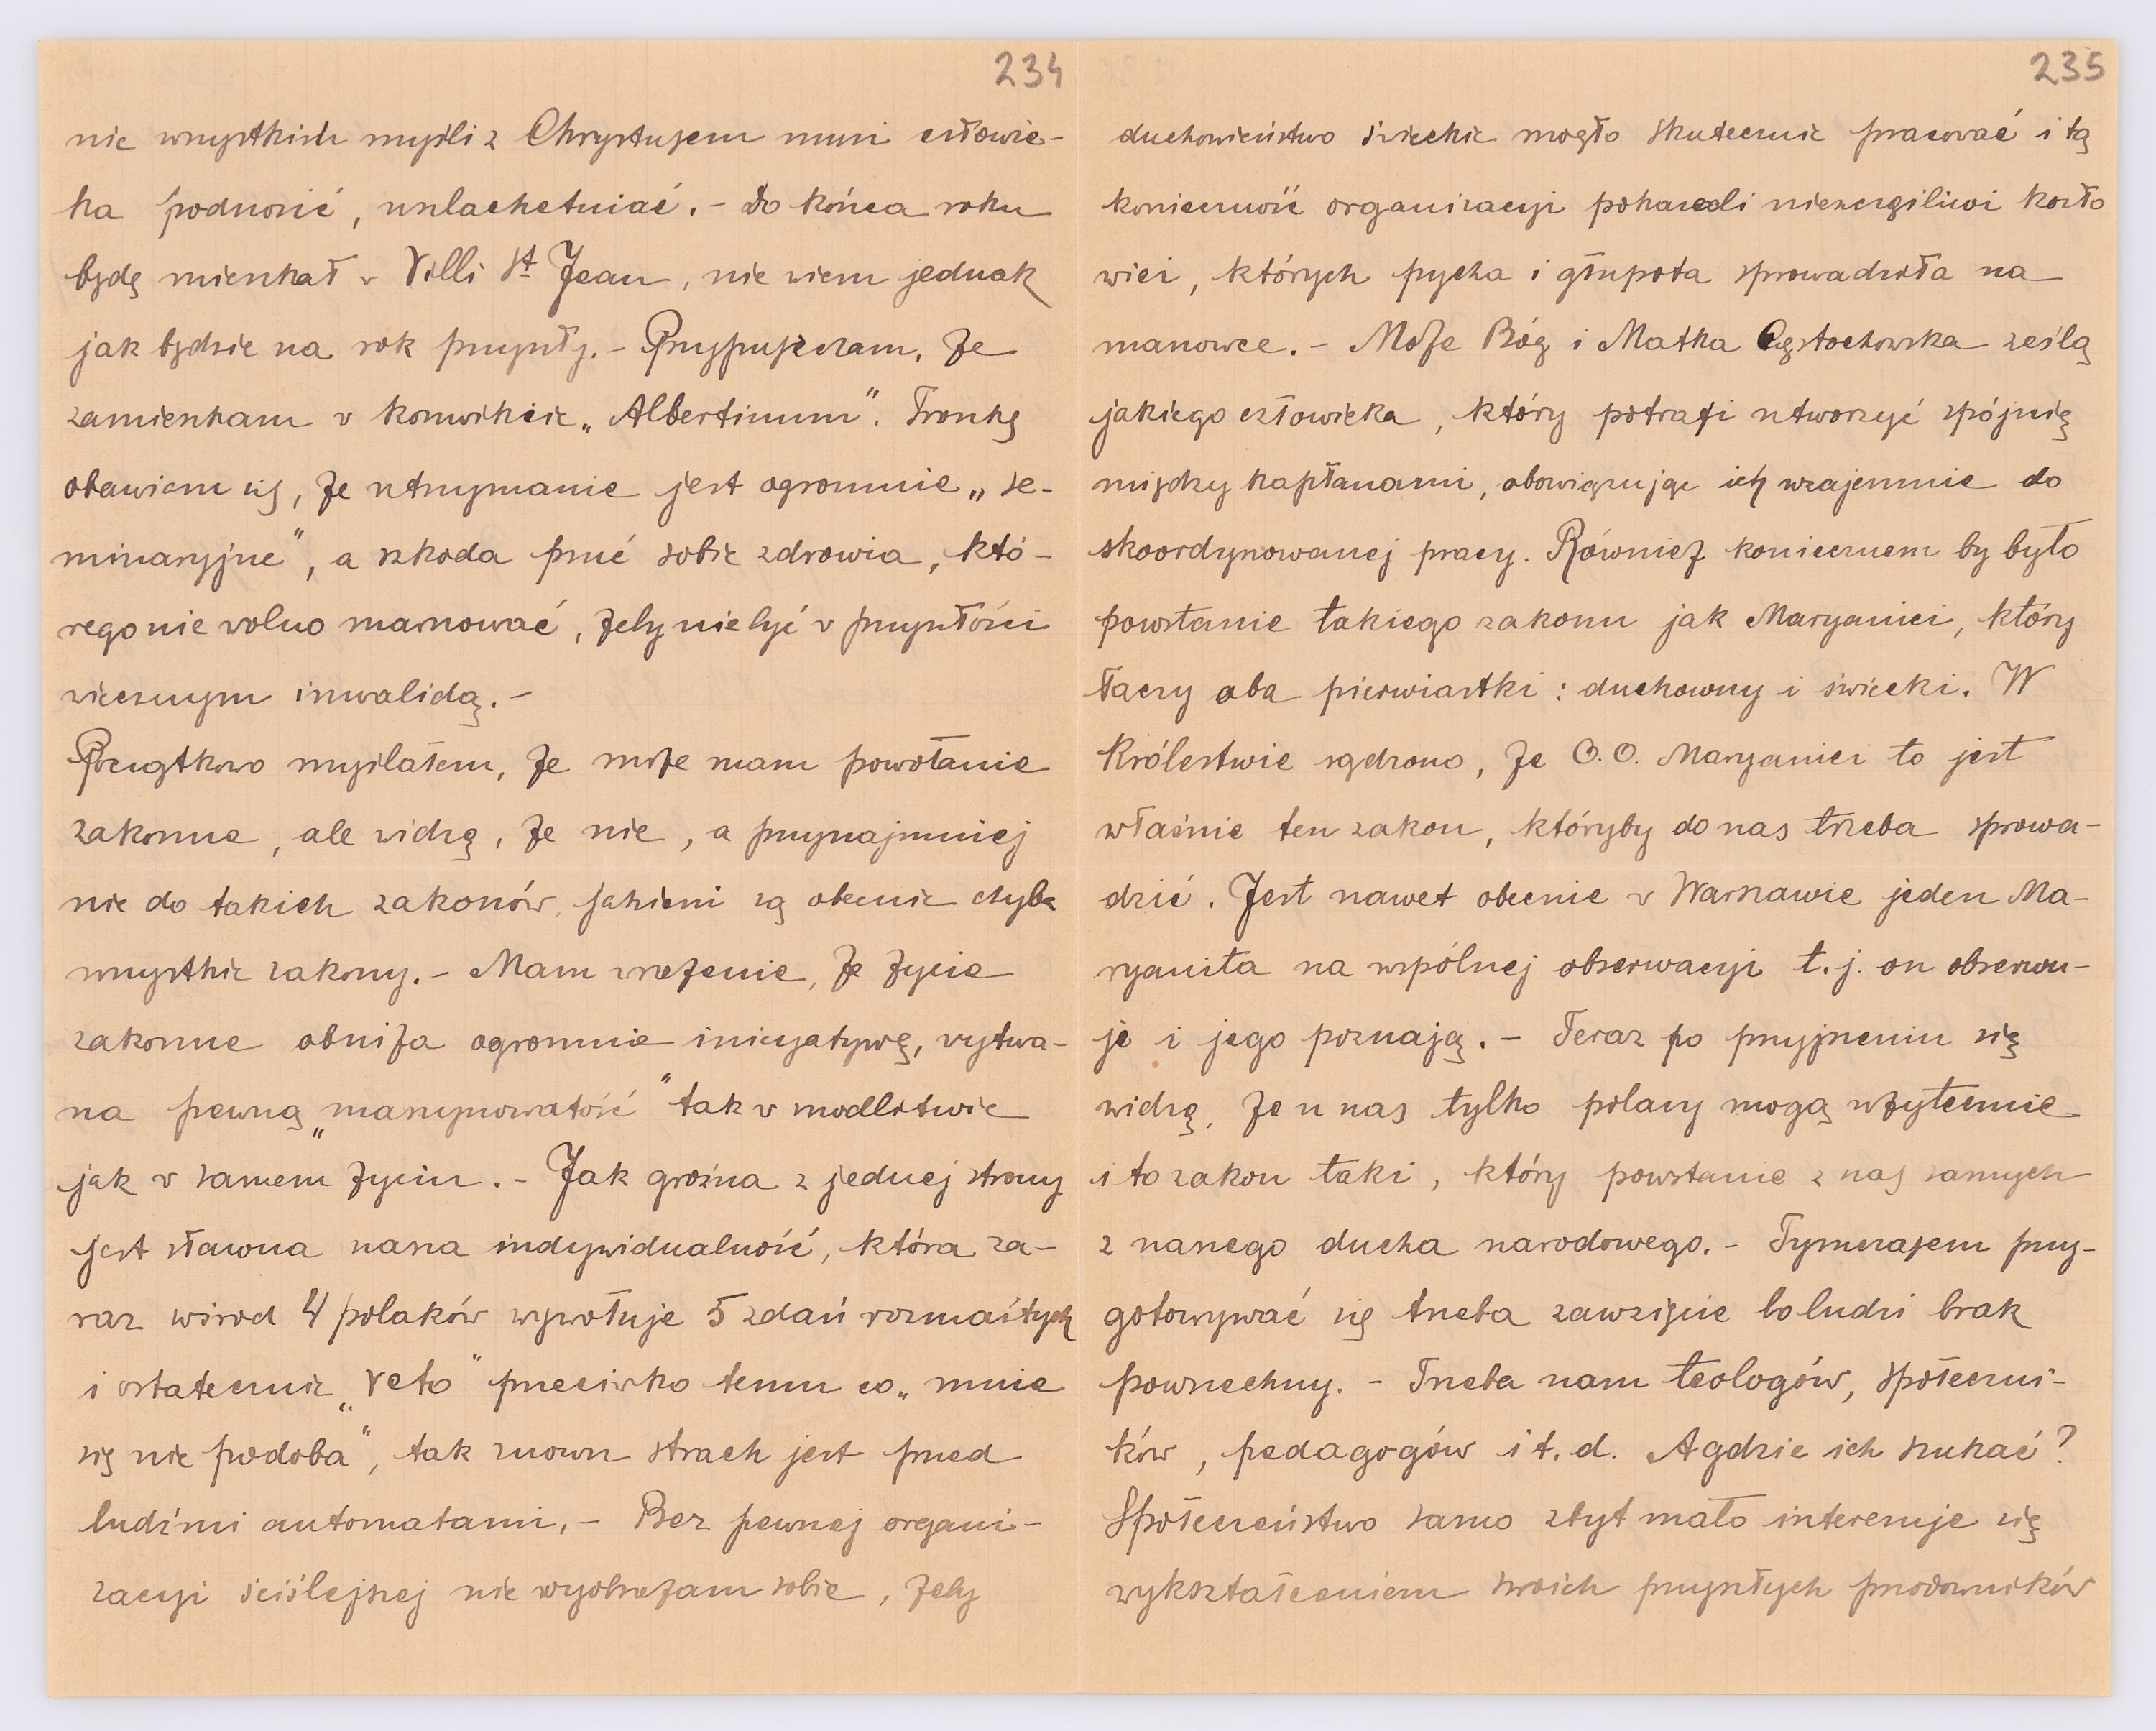 234
nie wszystkich myśli z Chrystusem musi człowie-
ka podnosić, uszlachetniać. - Do końca roku
będę mieszkał w Villi St Jean, nie wiem jednak
jak będzie na rok przyszły. - Przypuszczam, że
zamieszkam w konwikcie „Albertinum". Troszkę
obawiam się, że utrzymanie jest ogromnie „se-
minaryjne", a szkoda psuć sobie zdrowia, któ-
rego nie wolno marnować, żeby nie być w przyszłości
wiecznym inwalidą. -
Początkowo myślałem, że może mam powołanie
zakonne, ale widzę, że nie, a przynajmniej
nie do takich zakonów, jakiemi są obecnie chyba
wszystkie zakony. - Mam wrażenie, że życie
zakonne obniża ogromnie inicyatywę, wytwa-
rza pewną „maszynowatość" tak w modlitwie
jak w samem życiu. - Jak groźna z jednej strony
jest sławna nasza indywidualność, która za-
raz wśrod 4 polaków wywołuje 5 zdań rozmaitych
i ostatecznie „veto" przeciwko temu co „mnie
się nie podoba", tak znowu strach jest przed
ludźmi automatami. - Bez pewnej organi-
zacyi ściślejszej nie wyobrażam sobie, żeby
235
duchowieństwo świeckie mogło skutecznie pracować i tą
konieczność organizacyi pokazali nieszczęśliwi kozło
wici, których pycha i głupota sprowadziła na
manowce. - Może Bóg i Matka Częstochowska ześlą
jakiego człowieka, który potrafi utworzyć spójnię
między kapłanami, obowiązując ich wzajemnie do
skoordynowanej pracy. Również koniecznem by było
powstanie takiego zakonu jak Maryanici, który
łączy oba pierwiastki: duchowny i świecki. W
Królestwie sądzono, że O.O. Maryanici to jest
właśnie ten zakon, któryby do nas trzeba sprowa-
dzić. Jest nawet obecnie w Warszawie jeden Ma-
ryanita na wspólnej obserwacyi t.j. on obserwu-
je i jego poznają. - Teraz po przyjrzeniu się
widzę, że u nas tylko polacy mogą użytecznie
i to zakon taki, który powstanie z nas samych
z naszego ducha narodowego. - Tymczasem przy-
gotowywać się trzeba zawzięcie bo ludzi brak
powszechny. - Trzeba nam teologów, społeczni-
ków, pedagogów i t.d. A gdzie ich szukać?
Społeczeństwo samo zbyt mało interesuje się
wykształceniem swoich przyszłych przodowników